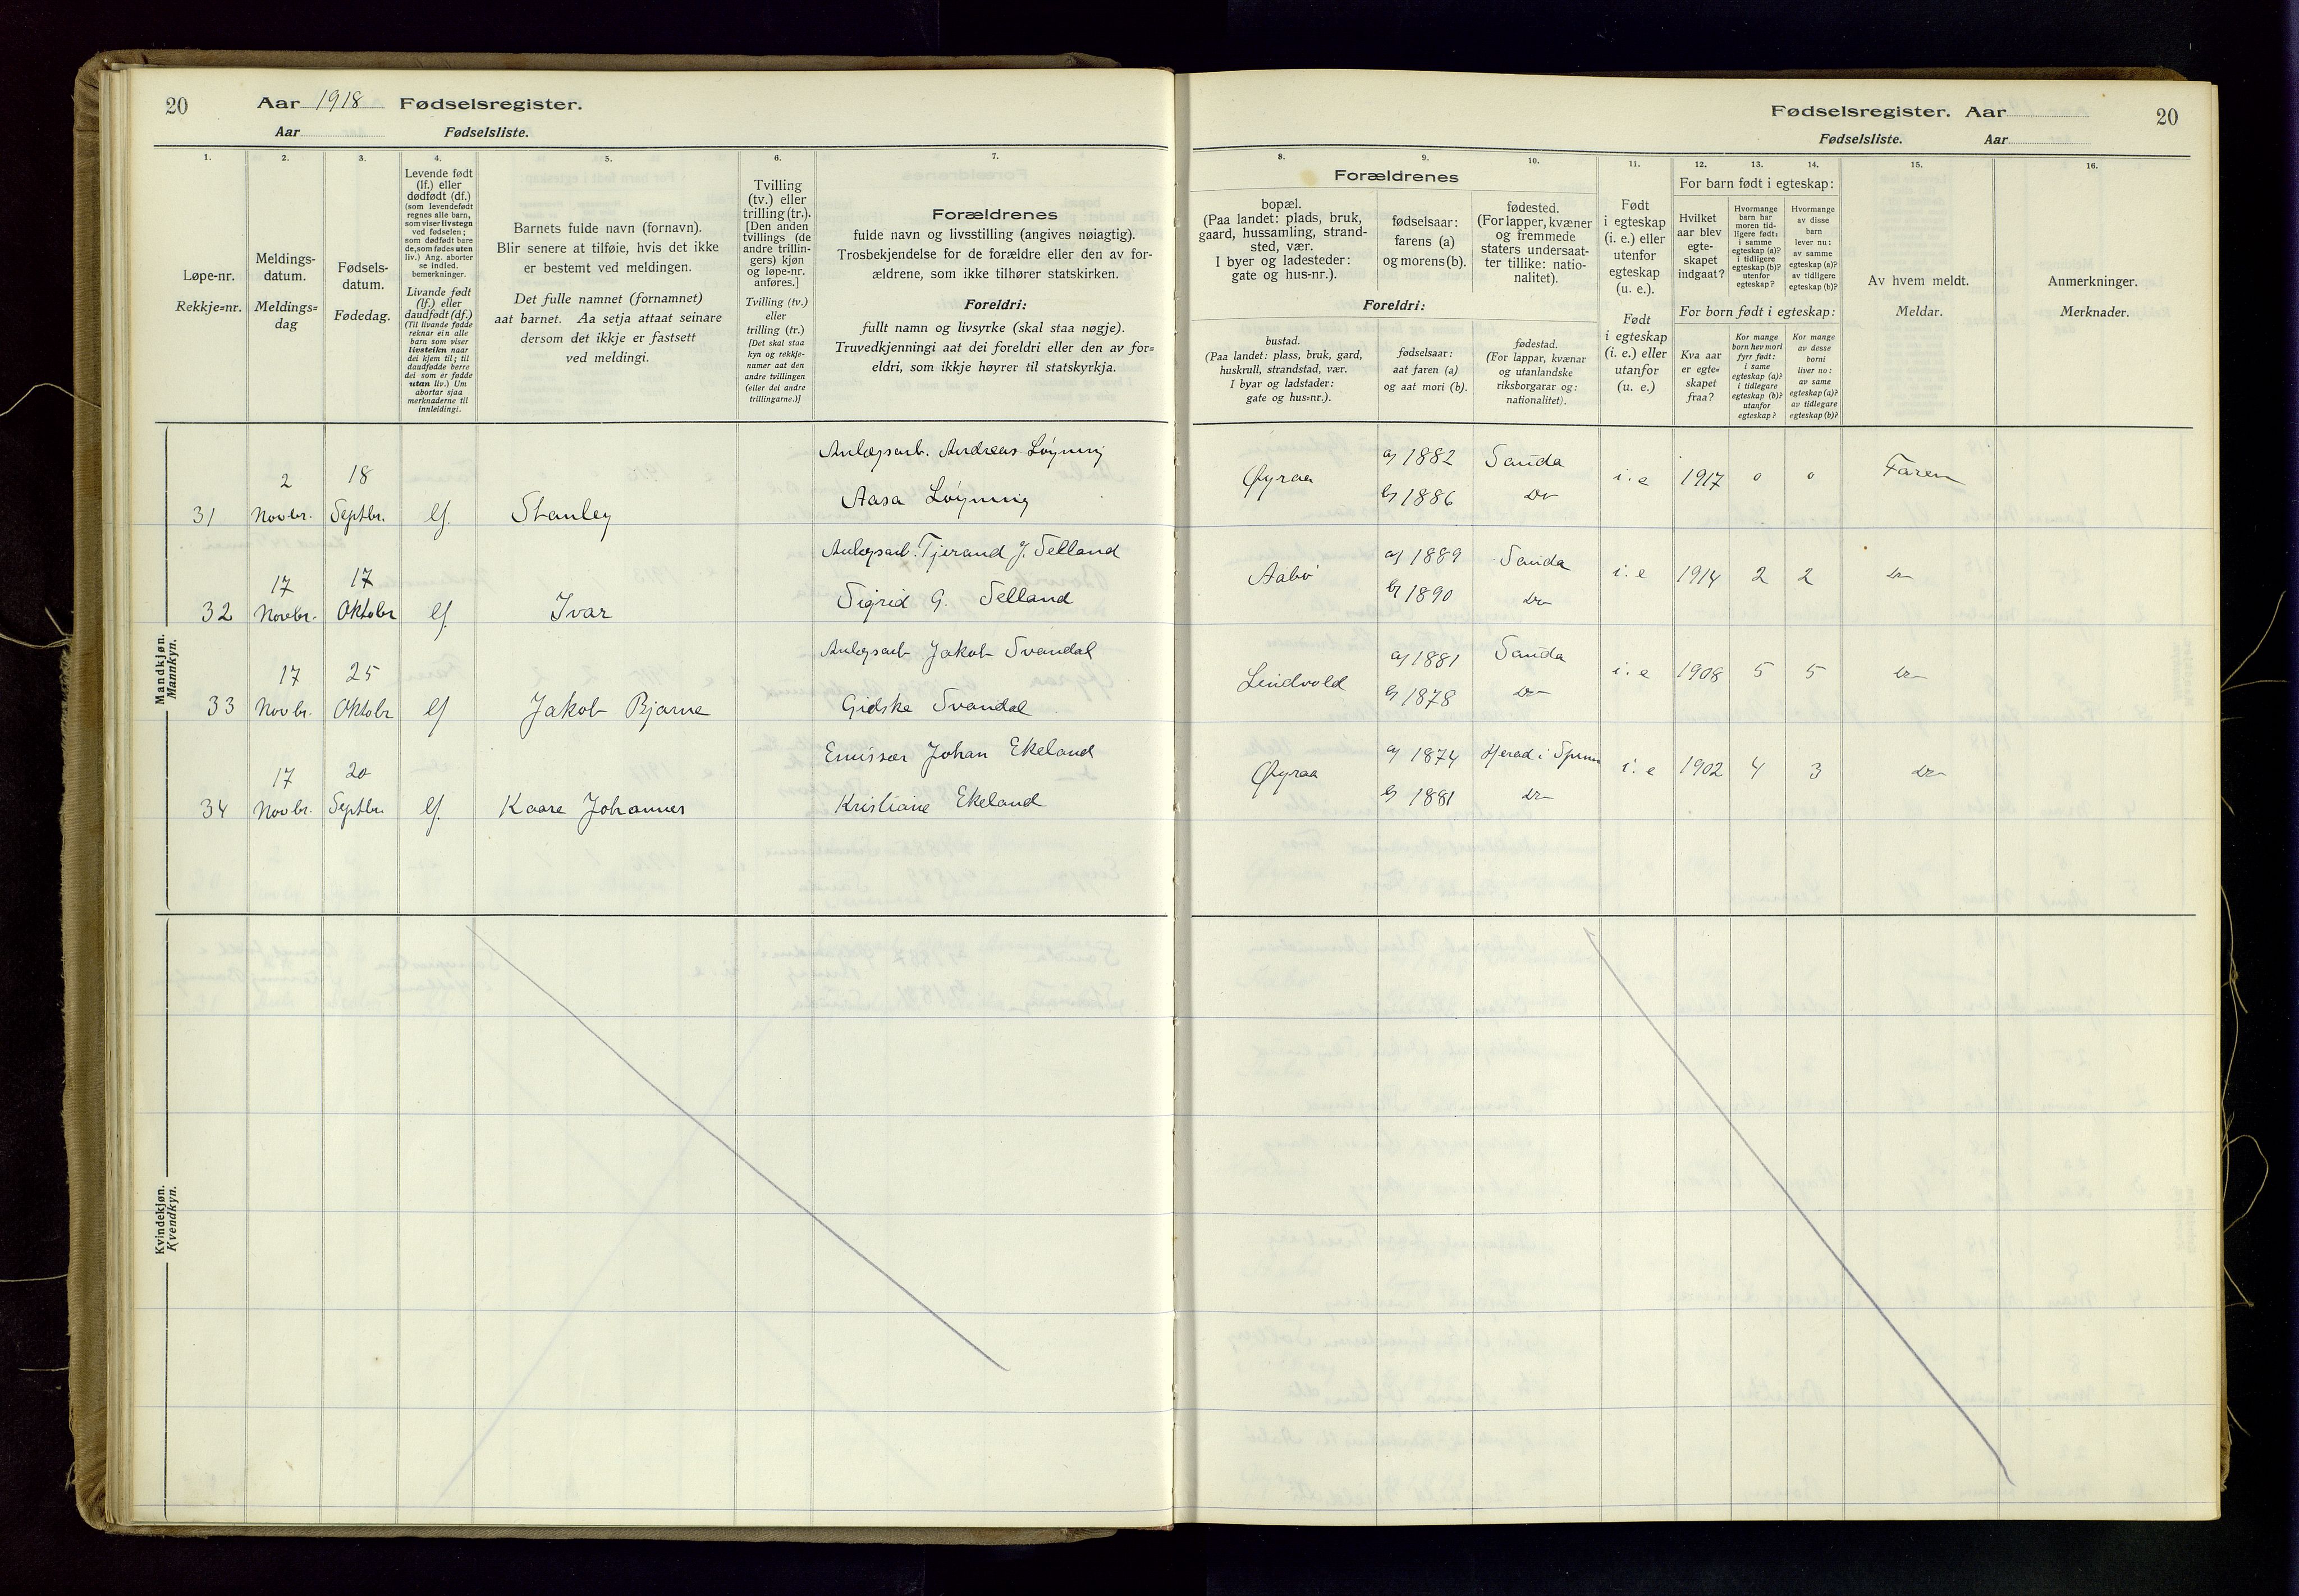 20 Aar 1918 Fødselsregister.
Aar Fødselsliste.
1. 2. 3. 4. 5. 6. 7.
Løpe-nr.
Rekkje=nr.
Meldings-
datum.
Meldings=
dag
Fødsels-
datum.
Fødedag.
Levende født
(lf.) eller
dødfødt (df.)
(som levendefødt
regnes alle barn,
som viser livstegn
ved fødselen;
som dødfødt bare
de, som fødes uten
liv.) Ang. aborter
se indled.
bemerkninger.
Livande født
(lf.) eller
daudfødt (df.)
(Til livande fødde
reknar ein alle
barn som viser
livsteikn naar
dei kjem til; til
daudfødde berre
dei som er fødde
utan liv.) Um
abortar sjaa
merknaderne til
innleidingi.
Barnets fulde navn (fornavn).
Blir senere at tilføie, hvis det ikke
er bestemt ved meldingen.
Det fulle namnet (fornamnet)
aat barnet. Aa setja attaat seinare
dersom det ikkje er fastsett
ved meldingi.
Tvilling
(tv.) eller
trilling (tr.).
[Den anden
tvillings (de
andre trillin-
gers) kjøn
og løpe-nr.
anføres.]
Tvilling (tv.)
eller
trilling (tr.)
[Det skal staa
kyn og rekkje-
numer aat den
andre tvillingen
(eller dei andre
trillingarne.)]
Forældrenes
fulde navn og livsstilling (angives nøiagtig).
Trosbekjendelse for de forældre eller den av for-
ældrene, som ikke tilhører statskirken.
Foreldri:
fullt namn og livsyrke (skal staa nøgje).
Truvedkjenningi aat dei foreldri eller den av for=
eldri, som ikkje høyrer til statskyrkja.
Mandkjøn.
Mannkyn.
Anlægsarb. Andreas Løyning
2 18
31 Novbr. Septbr. lf. Stanley Aasa Løyning
Anlegsarb. Tjerand J. Selland
17 17
32 Novbr. Oktobr lf. Ivar Sigrid G. Selland
Anlegsarb Jakob Svandal
17 25
33 Novbr. Oktobr lf Jakob Bjarne Gidske Svandal
Emissær Johan Ekeland
17 20
34 Novbr. Septbr. lf. Kaare Johannes Kristiane Ekeland
Kvindekjøn.
Kvendkyn.
Fødselsregister. Aar 20
Fødselsliste. Aar
8. 9. 10. 11. 12. 13. 14. 15. 16.
Forældrenes
bopæl.
(Paa landet: plads, bruk,
gaard, hussamling, strand-
sted, vær.
I byer og ladesteder:
gate og hus-nr.).
fødselsaar:
farens (a)
og morens (b).
fødested.
(For lapper, kvæner
og fremmede
staters undersaat-
ter tillike: natio-
nalitet).
Foreldri:
bustad.
(Paa landet: plass, bruk, gard,
huskrull, strandstad, vær.
I byar og ladstader:
gate og hus=nr.).
fødselsaar:
aat faren (a)
og aat mori (b).
fødestad.
(For lappar, kvænar
og utanlandske
riksborgarar og:
nationalitet).
Født
i egteskap
(i. e.) eller
utenfor
egteskap
(u. e.).
Født
i egteskap
(i. e.) eller
utanfor
(u. e.)
For barn født i egteskap:
Hvilket
aar blev
egte-
skapet
indgaat?
Hvormange
barn har
moren tid-
ligere født:
i samme
egteskap (a)?
i tidligere
egteskap (b)?
utenfor
egteskap?
Hvormange
av disse
barn
lever nu:
av samme
egteskap (a)?
av tidligere
egteskap (b)?
For born født i egteskap:
Kva aar
er egte=
skapet
fraa?
Kor mange
born hev mori
fyrr født:
i same
egteskap (a)?
i tidlegare
egteskap (b)?
utanfor
egteskap?
Kor mange
av desse
borni
liver no:
av same
egteskap (a)?
av tidlegare
egteskap (b)?
Av hvem meldt.
Meldar.
Anmerkninger.
Merknader.
Øyraa a) 1882 Sauda i. e 1917 0 0 Faren
b) 1886 Do
Aabø a) 1889 Sauda i. e 1914 2 2 Do
b) 1890 Do
Lindvold a) 1881 Sauda i. e 1908 5 5 Do
b) 1878 Do
Øyraa a) 1874 Herad i i. e 1902 4 3 Do
b) 1881 Do